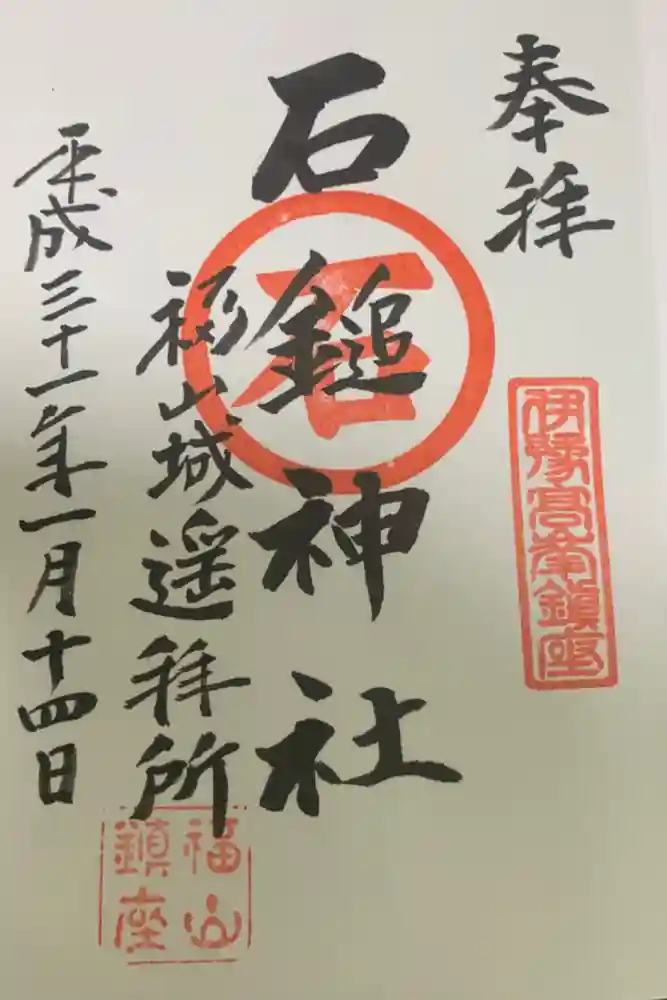 奉拝
伊豫高峯鎮座
石鎚神社
石
福山城遥拝所
福山
鎮座
平成三十一年一月十四日